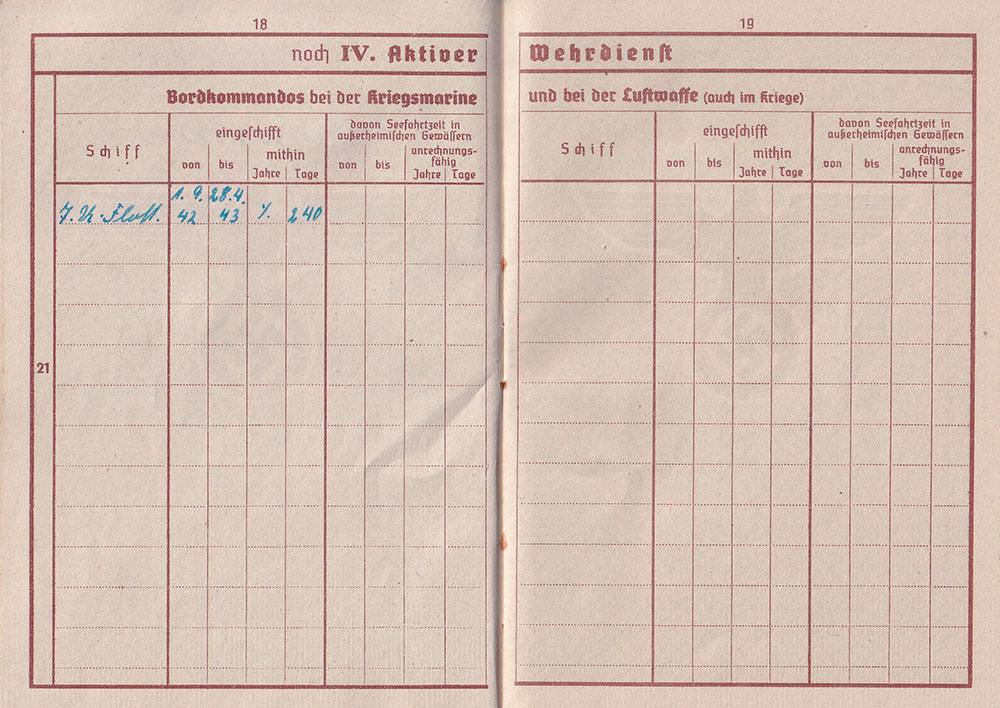 18
noch IV. Aktiver
Bordkommandos bei der Kriegsmarine
Schiff
eingeschifft
von
bis
mithin
Jahre
Tage
davon Seefahrtzeit in
außerheimischen Gewässern
von
bis
anrechnungs-
fähig
Jahre
Tage
1. 9. 28.4.
7. U-Flott. 42 43 ⁒ 240
21
19
Wehrdienst
und bei der Luftwaffe (auch im Kriege)
Schiff
eingeschifft
von
bis
mithin
Jahre
Tage
davon Seefahrtzeit in
außerheimischen Gewässern
von
bis
anrechnungs-
fähig
Jahre
Tage